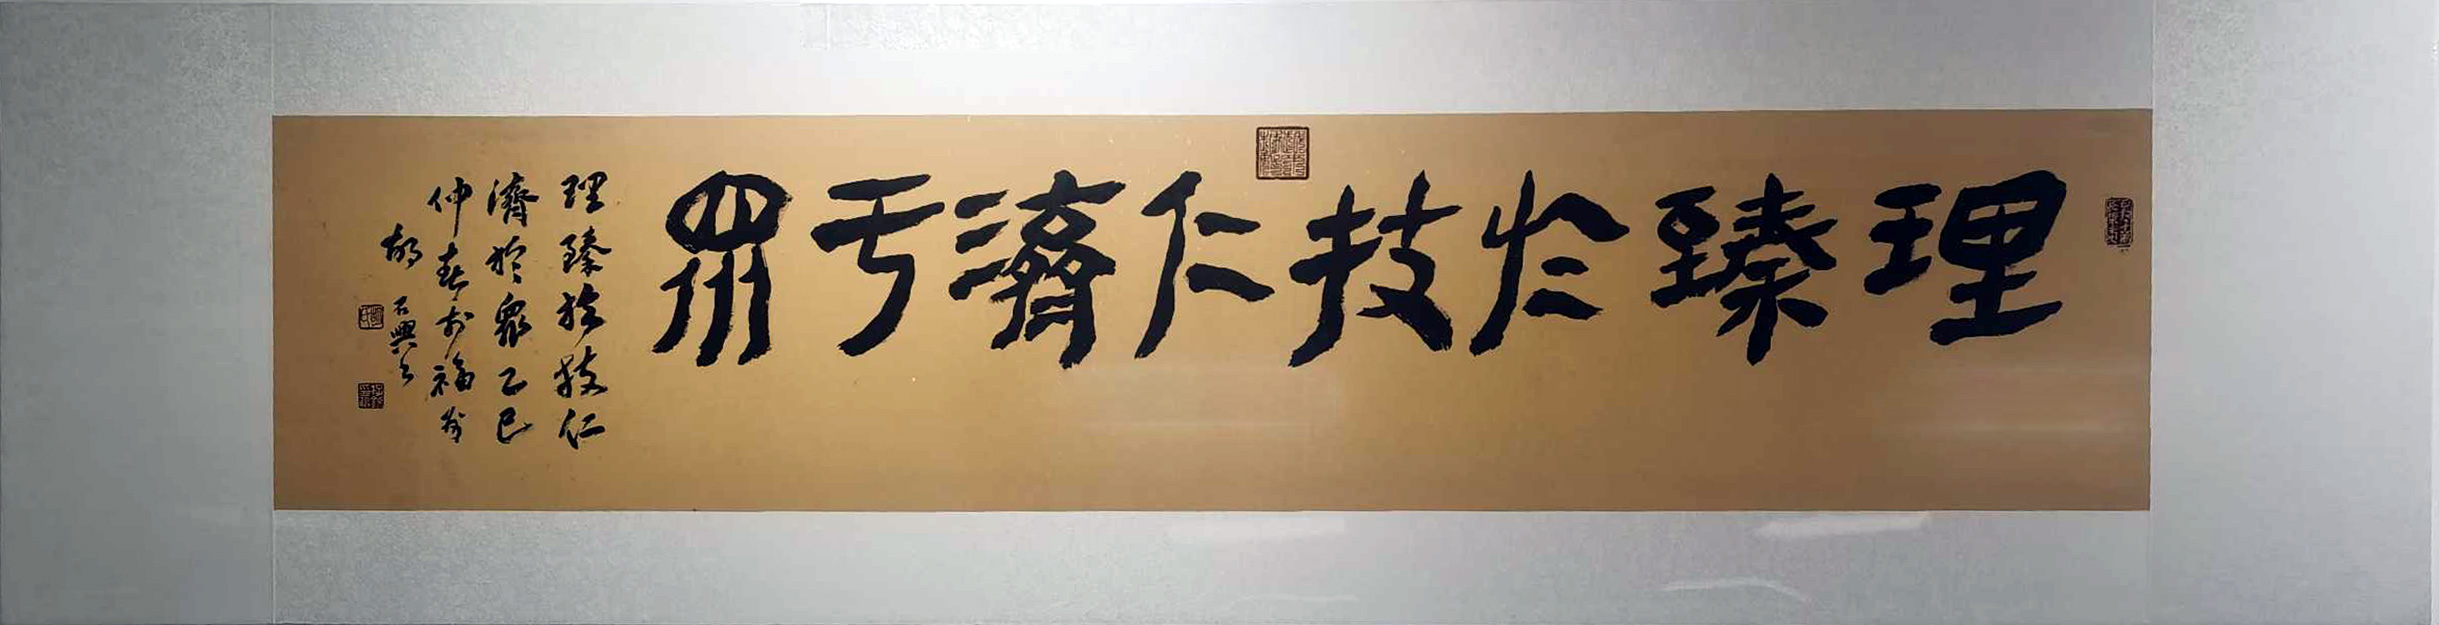 理臻於技仁濟于眾
理臻於技仁
濟於眾乙巳
仲春於福州
胡石興書